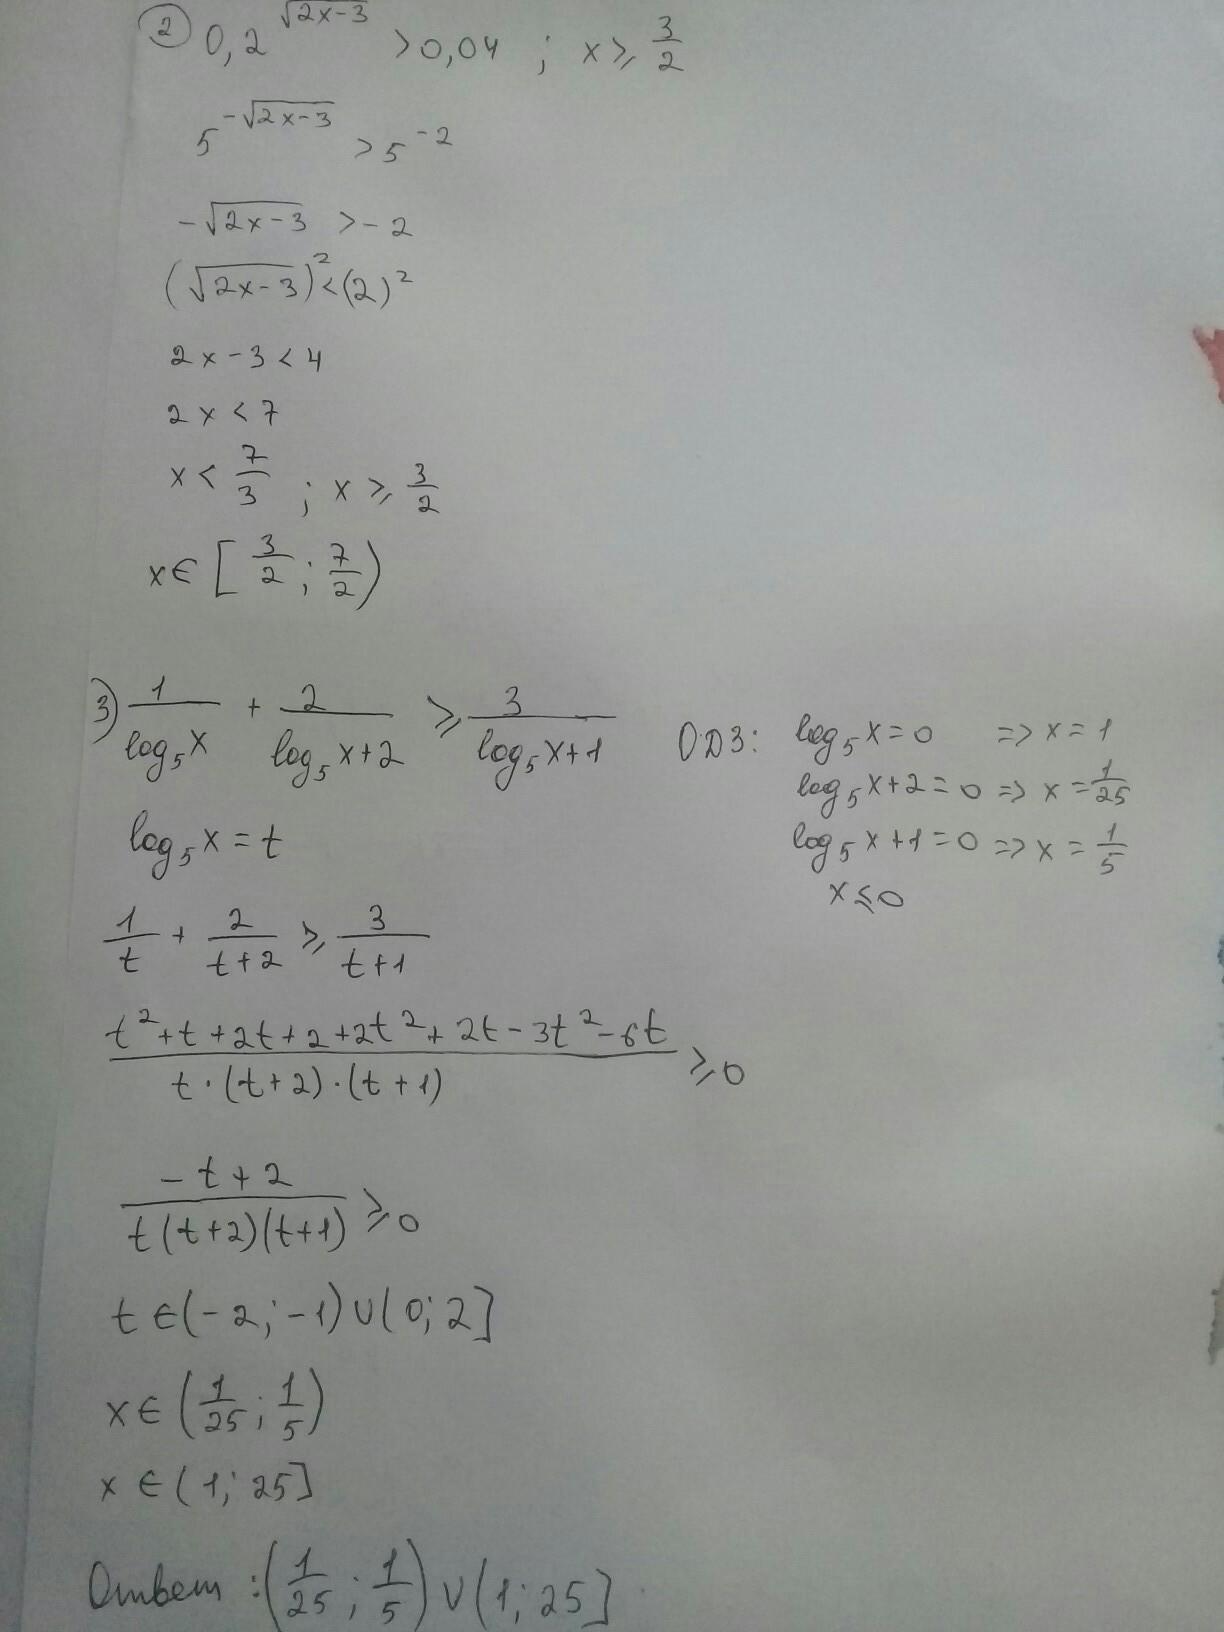 2) 0,2^√(2x-3) > 0,04 ; x ⩾ 3/2
5^(-√(2x-3)) > 5^(-2)
-√(2x-3) > -2
(√(2x-3))² < (2)²
2x-3 < 4
2x < 7
x < 7/3 ; x ⩾ 3/2
x ∈ [3/2 ; 7/2)
3) 1/(log₅x) + 2/(log₅x+2) ⩾ 3/(log₅x+1)
ОДЗ: log₅x = 0 => x = 1
log₅x+2 = 0 => x = 1/25
log₅x+1 = 0 => x = 1/5
x ⩽ 0
log₅x = t
1/t + 2/(t+2) ⩾ 3/(t+1)
(t²+t+2t+2+2t²+2t-3t²-6t)/(t·(t+2)·(t+1)) ⩾ 0
(-t+2)/(t(t+2)(t+1)) ⩾ 0
t ∈ (-2; -1) ∪ (0; 2]
x ∈ (1/25 ; 1/5)
x ∈ (1; 25]
Ответ : (1/25 ; 1/5) ∪ (1; 25]